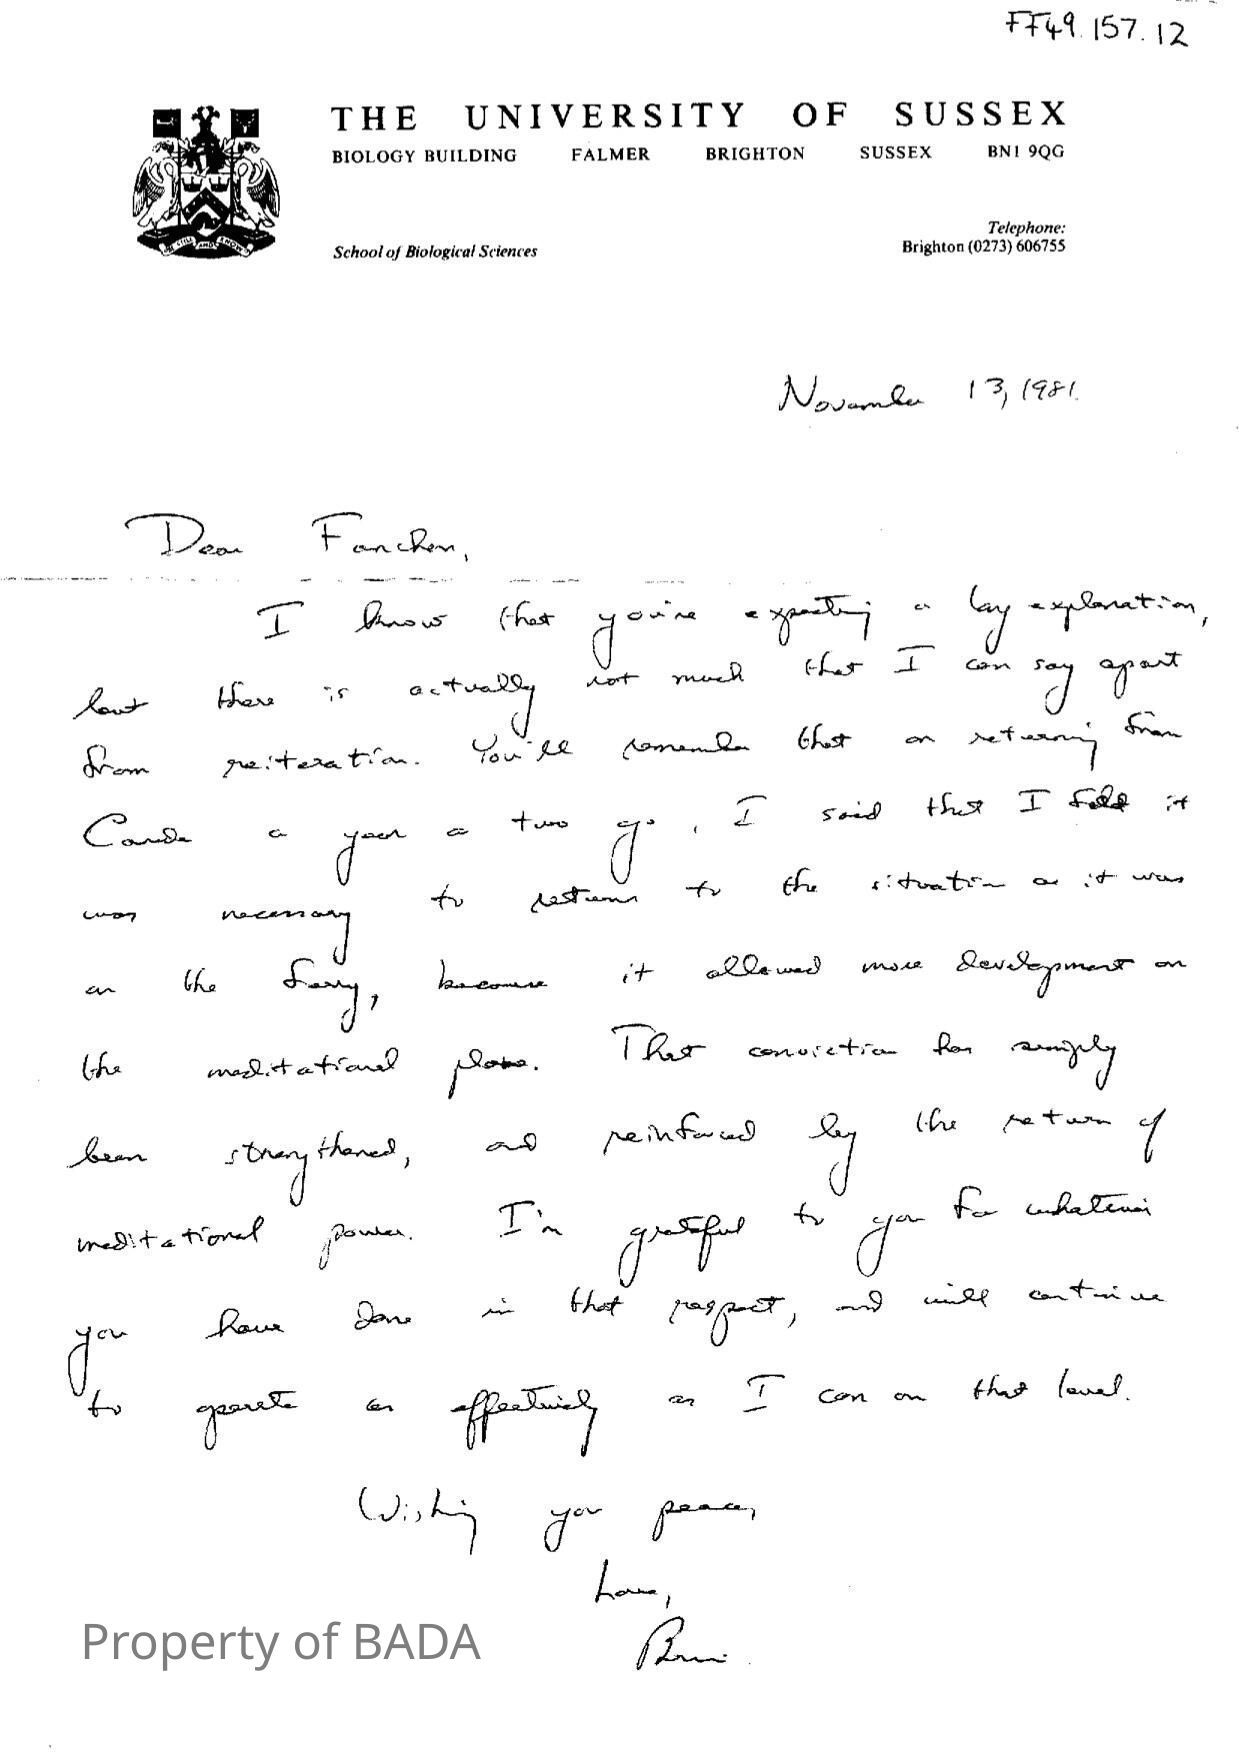 FF49.157.12
THE UNIVERSITY OF SUSSEX
BIOLOGY BUILDING FALMER BRIGHTON SUSSEX BN1 9QG
Telephone:
Brighton (0273) 606755
School of Biological Sciences
November 13, 1981.
Dear Fanchon,
I know that you're expecting a lay explanation,
but there is actually not much that I can say apart
from reiteration. You'll remember that on returning from
Canada a year or two ago, I said that I felt it
was necessary to return to the situation as it was
on the ferry, because it allowed more development on
the meditational plane. That conviction has simply
been strengthened, and reinforced by the return of
meditational power. I'm grateful to you for whatever
you have done in that respect, and will continue
to operate as effectively as I can on that level.
Wishing you peace,
Love,
Property of BADA